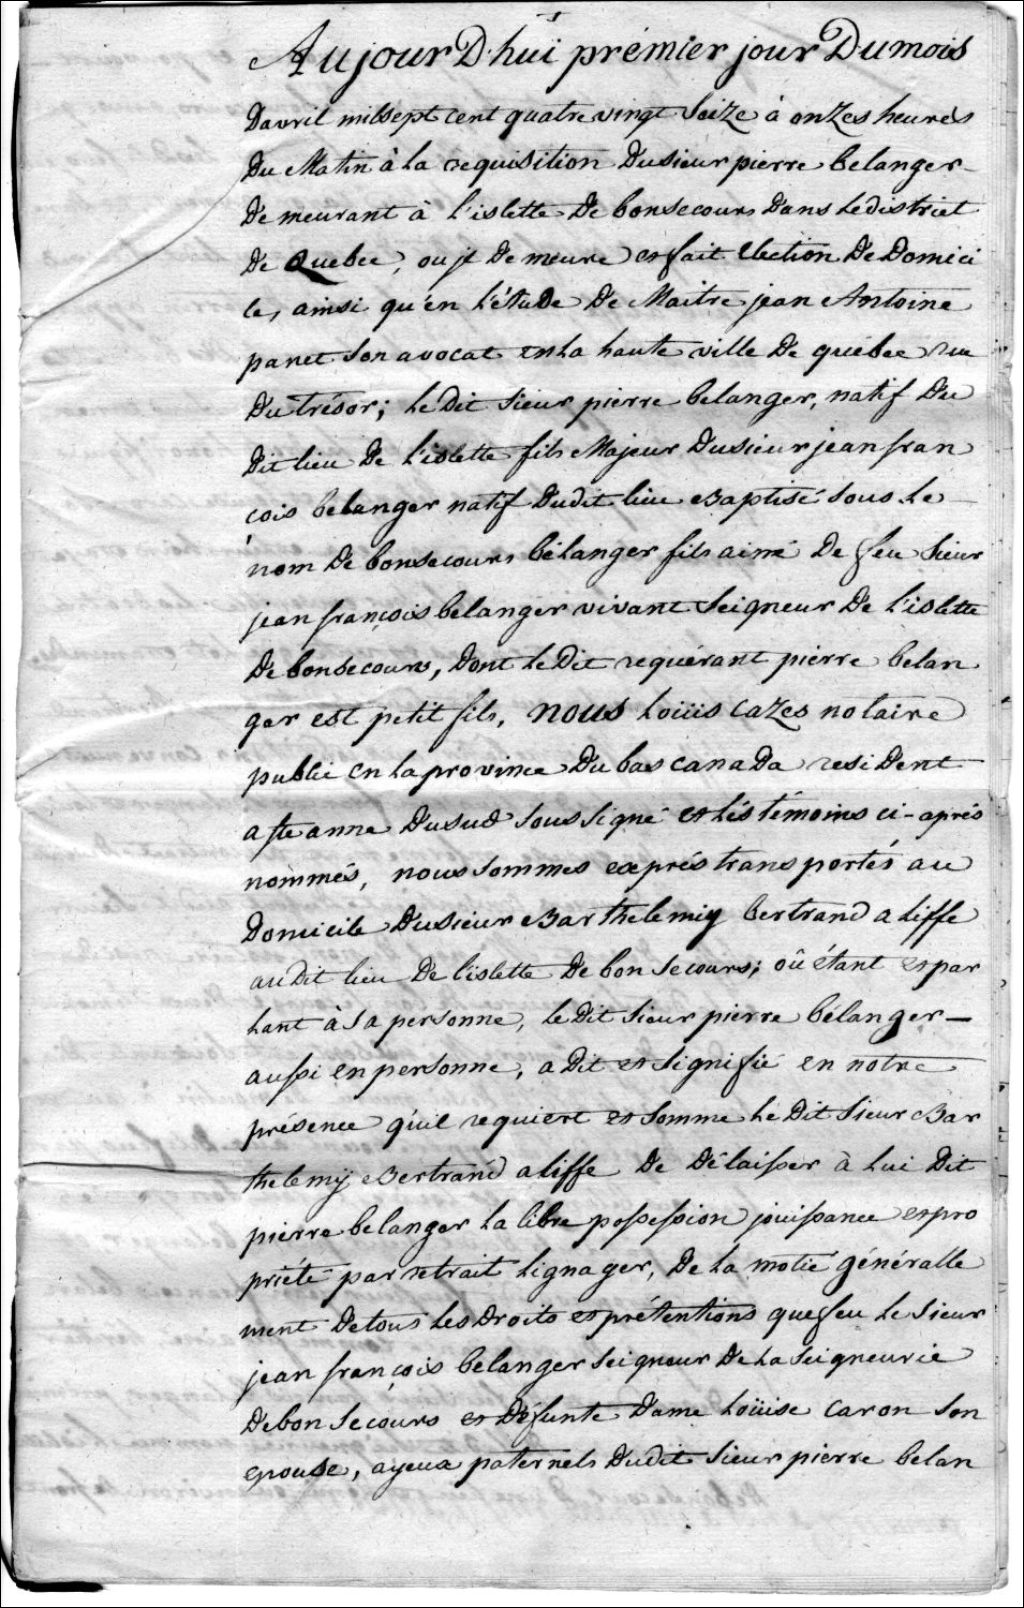 Aujour D'huï prémier jour Du mois
Davril mil sept cent quatre vingt Seize à onzes heures
Du Matin à la requisition Du sieur pierre belanger
Demeurant à l'islette De bonsecours Dans le district
De Quebec, ou jl Demeure et fait Election De Domici
le, ainsi qu'en l'étude De Maitre jean Antoine
panet son avocat en la haute ville De québec rue
Du trésor; le Dit Sieur pierre belanger, natif Du
Dit lieu De l'islette fils Majeur Du sieur jean fran
çois belanger natif Dudit lieu Baptisé sous le
nom De bonsecours bélanger fils ainé De feu Sieur
jean françois belanger vivant Seigneur De l'islette
De bonsecours, Dont le Dit requérant pierre belan
ger est petit fils, nous Loüis Cazes notaire
public en la province Du bas canada resident
a ste anne Du sud soussigné et lés témoins ci-aprés
nommés, nous sommes exprés transportés au
Domicile Du sieur Barthelemiy bertrand aliffe
au Dit lieu De l'islette De bon Secours; oû étant et par
lant à sa personne, le Dit Sieur pierre bélanger—
aussi en personne, a Dit et signifié en notre
présence qu'il requiert et somme le Dit Sieur Bar
thelemÿ Bertrand aliffe De Délaisser à lui Dit
pierre belanger la libre possession jouissance et pro
priété par retrait lignager, De la motié générallе
ment De tous les Droits et prétentions que feu le Sieur
jean françois belanger seigneur De la seigneurie
De bon Secours et Défunte Dame Loüise Caron son
epouse, ayeux paternels Dudit Sieur pierre belan